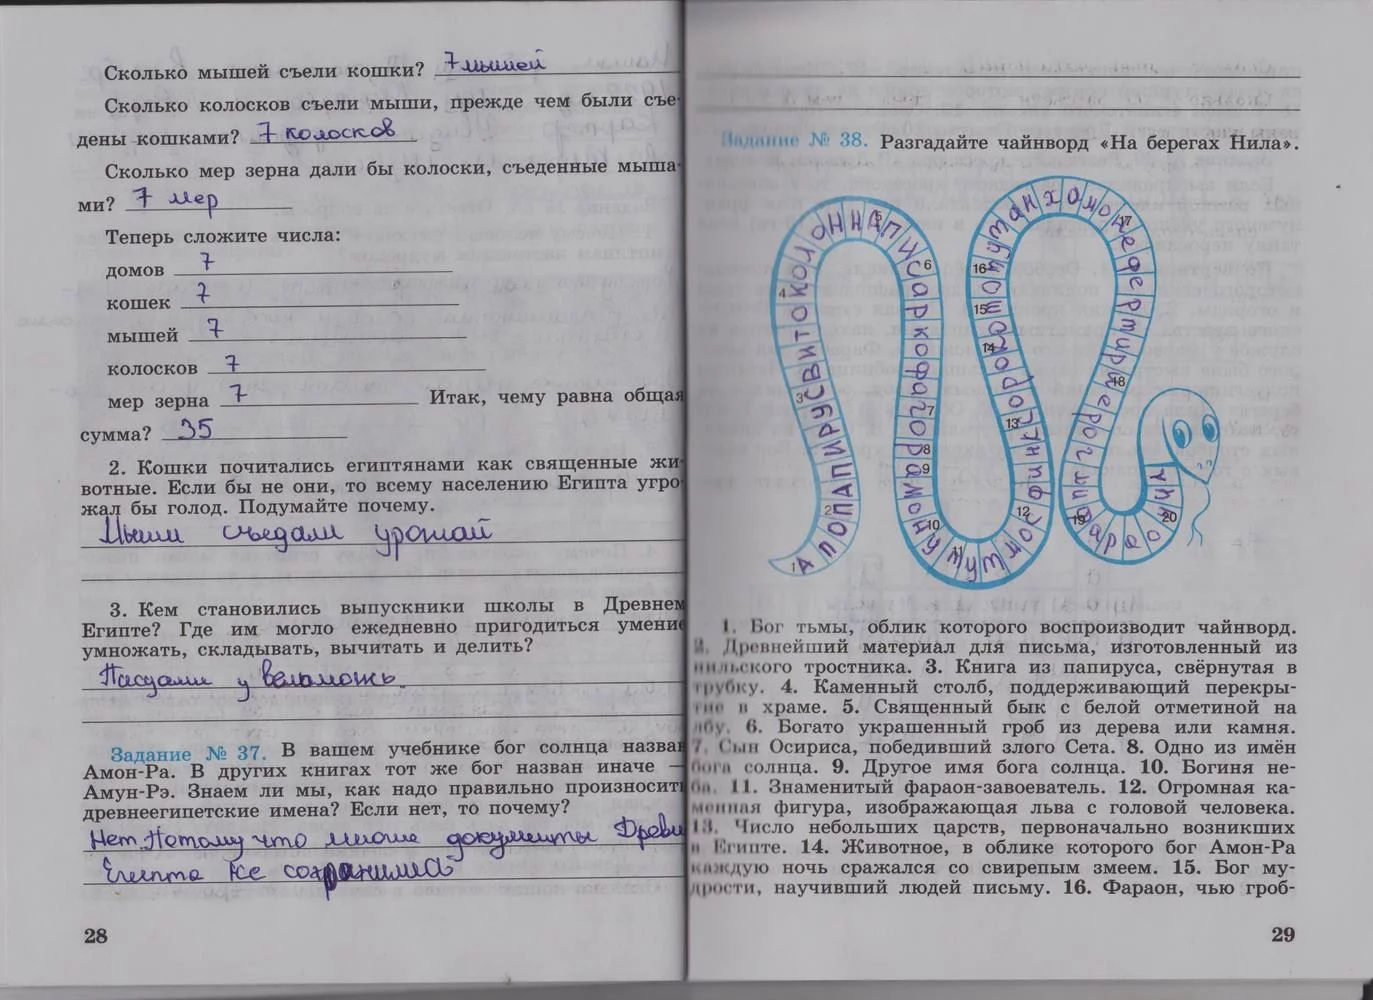 Сколько мышей съели кошки? 7 мышей
Сколько колосков съели мыши, прежде чем были съе-
дены кошками? 7 колосков
Сколько мер зерна дали бы колоски, съеденные мыша-
ми? 7 мер
Теперь сложите числа:
домов 7
кошек 7
мышей 7
колосков 7
мер зерна 7 Итак, чему равна общая
сумма? 35
2. Кошки почитались египтянами как священные жи-
вотные. Если бы не они, то всему населению Египта угро-
жал бы голод. Подумайте почему.
Мыши съедали урожай
3. Кем становились выпускники школы в Древнем
Египте? Где им могло ежедневно пригодиться умение
умножать, складывать, вычитать и делить?
Писцами у вельможь
Задание № 37. В вашем учебнике бог солнца назван
Амон-Ра. В других книгах тот же бог назван иначе —
Амун-Рэ. Знаем ли мы, как надо правильно произносить
древнеегипетские имена? Если нет, то почему?
Нет. Потому что многие документы Древн
Египта не сохранились
28
Задание № 38. Разгадайте чайнворд «На берегах Нила».
1. Бог тьмы, облик которого воспроизводит чайнворд.
2. Древнейший материал для письма, изготовленный из
нильского тростника. 3. Книга из папируса, свёрнутая в
трубку. 4. Каменный столб, поддерживающий перекры-
тие в храме. 5. Священный бык с белой отметиной на
лбу. 6. Богато украшенный гроб из дерева или камня.
7. Сын Осириса, победивший злого Сета. 8. Одно из имён
бога солнца. 9. Другое имя бога солнца. 10. Богиня не-
ба. 11. Знаменитый фараон-завоеватель. 12. Огромная ка-
менная фигура, изображающая льва с головой человека.
13. Число небольших царств, первоначально возникших
в Египте. 14. Животное, в облике которого бог Амон-Ра
каждую ночь сражался со свирепым змеем. 15. Бог му-
дрости, научивший людей письму. 16. Фараон, чью гроб-
29